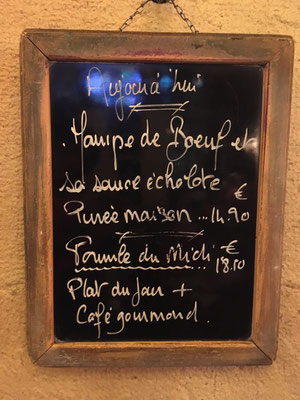 Aujourd'hui
. Hampe de Boeuf et
sa sauce échalote
€
Purée maison ... 14.90
Formule du Midi €
... 18.50
Plat du Jour +
Café gourmand.